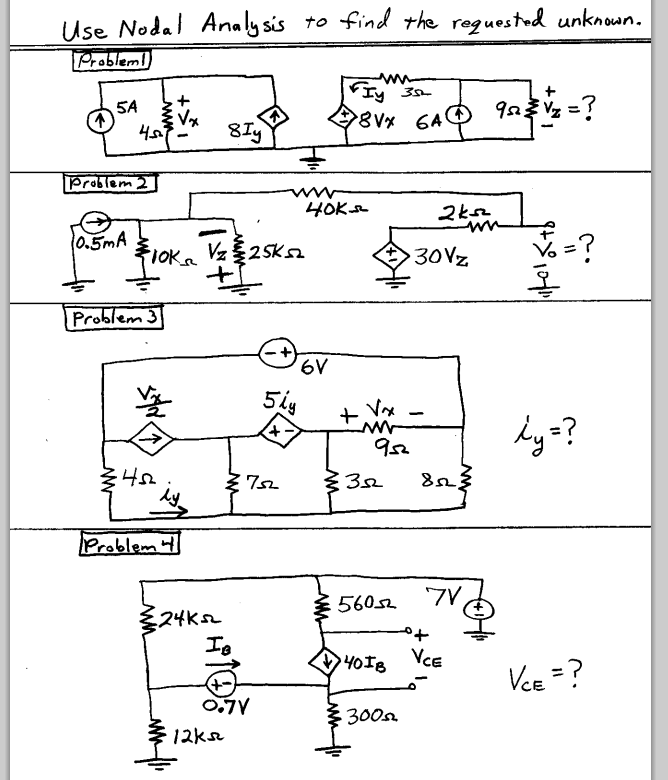 Use Nodal Analysis to find the requested unknown.
Problem 1
5A 4Ω + Vx − 8Iy Iy 3Ω + − 8Vx 6A 9Ω + Vz − =?
Problem 2
40KΩ
0.5mA 10KΩ − Vz + 25KΩ 2kΩ + − 30Vz + Vo − =?
Problem 3
− + 6V
Vx/2 5iy + − + Vx − 9Ω iy=?
4Ω iy 7Ω 3Ω 8Ω
Problem 4
24KΩ 560Ω 7V + −
IB 40IB + VCE − VCE=?
+ − 0.7V
12kΩ 300Ω